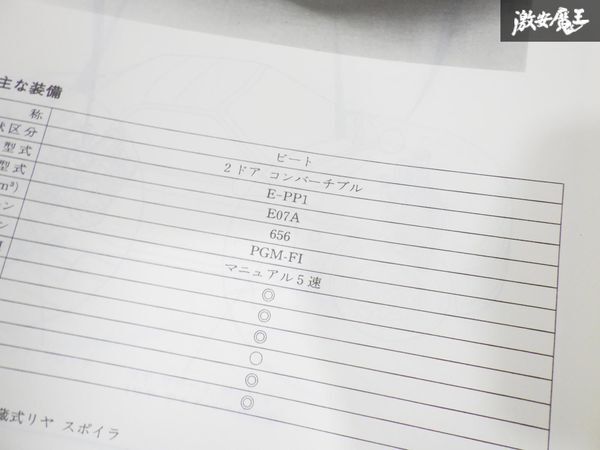 激安魔王
主な装備
称
ビート
状区分
2ドア コンバーチブル
型式
E-PP1
型式
E07A
m³)
656
ン
PGM-FI
ン
マニュアル5速
◎
◎
◎
○
◎
◎
蔵式リヤ スポイラ